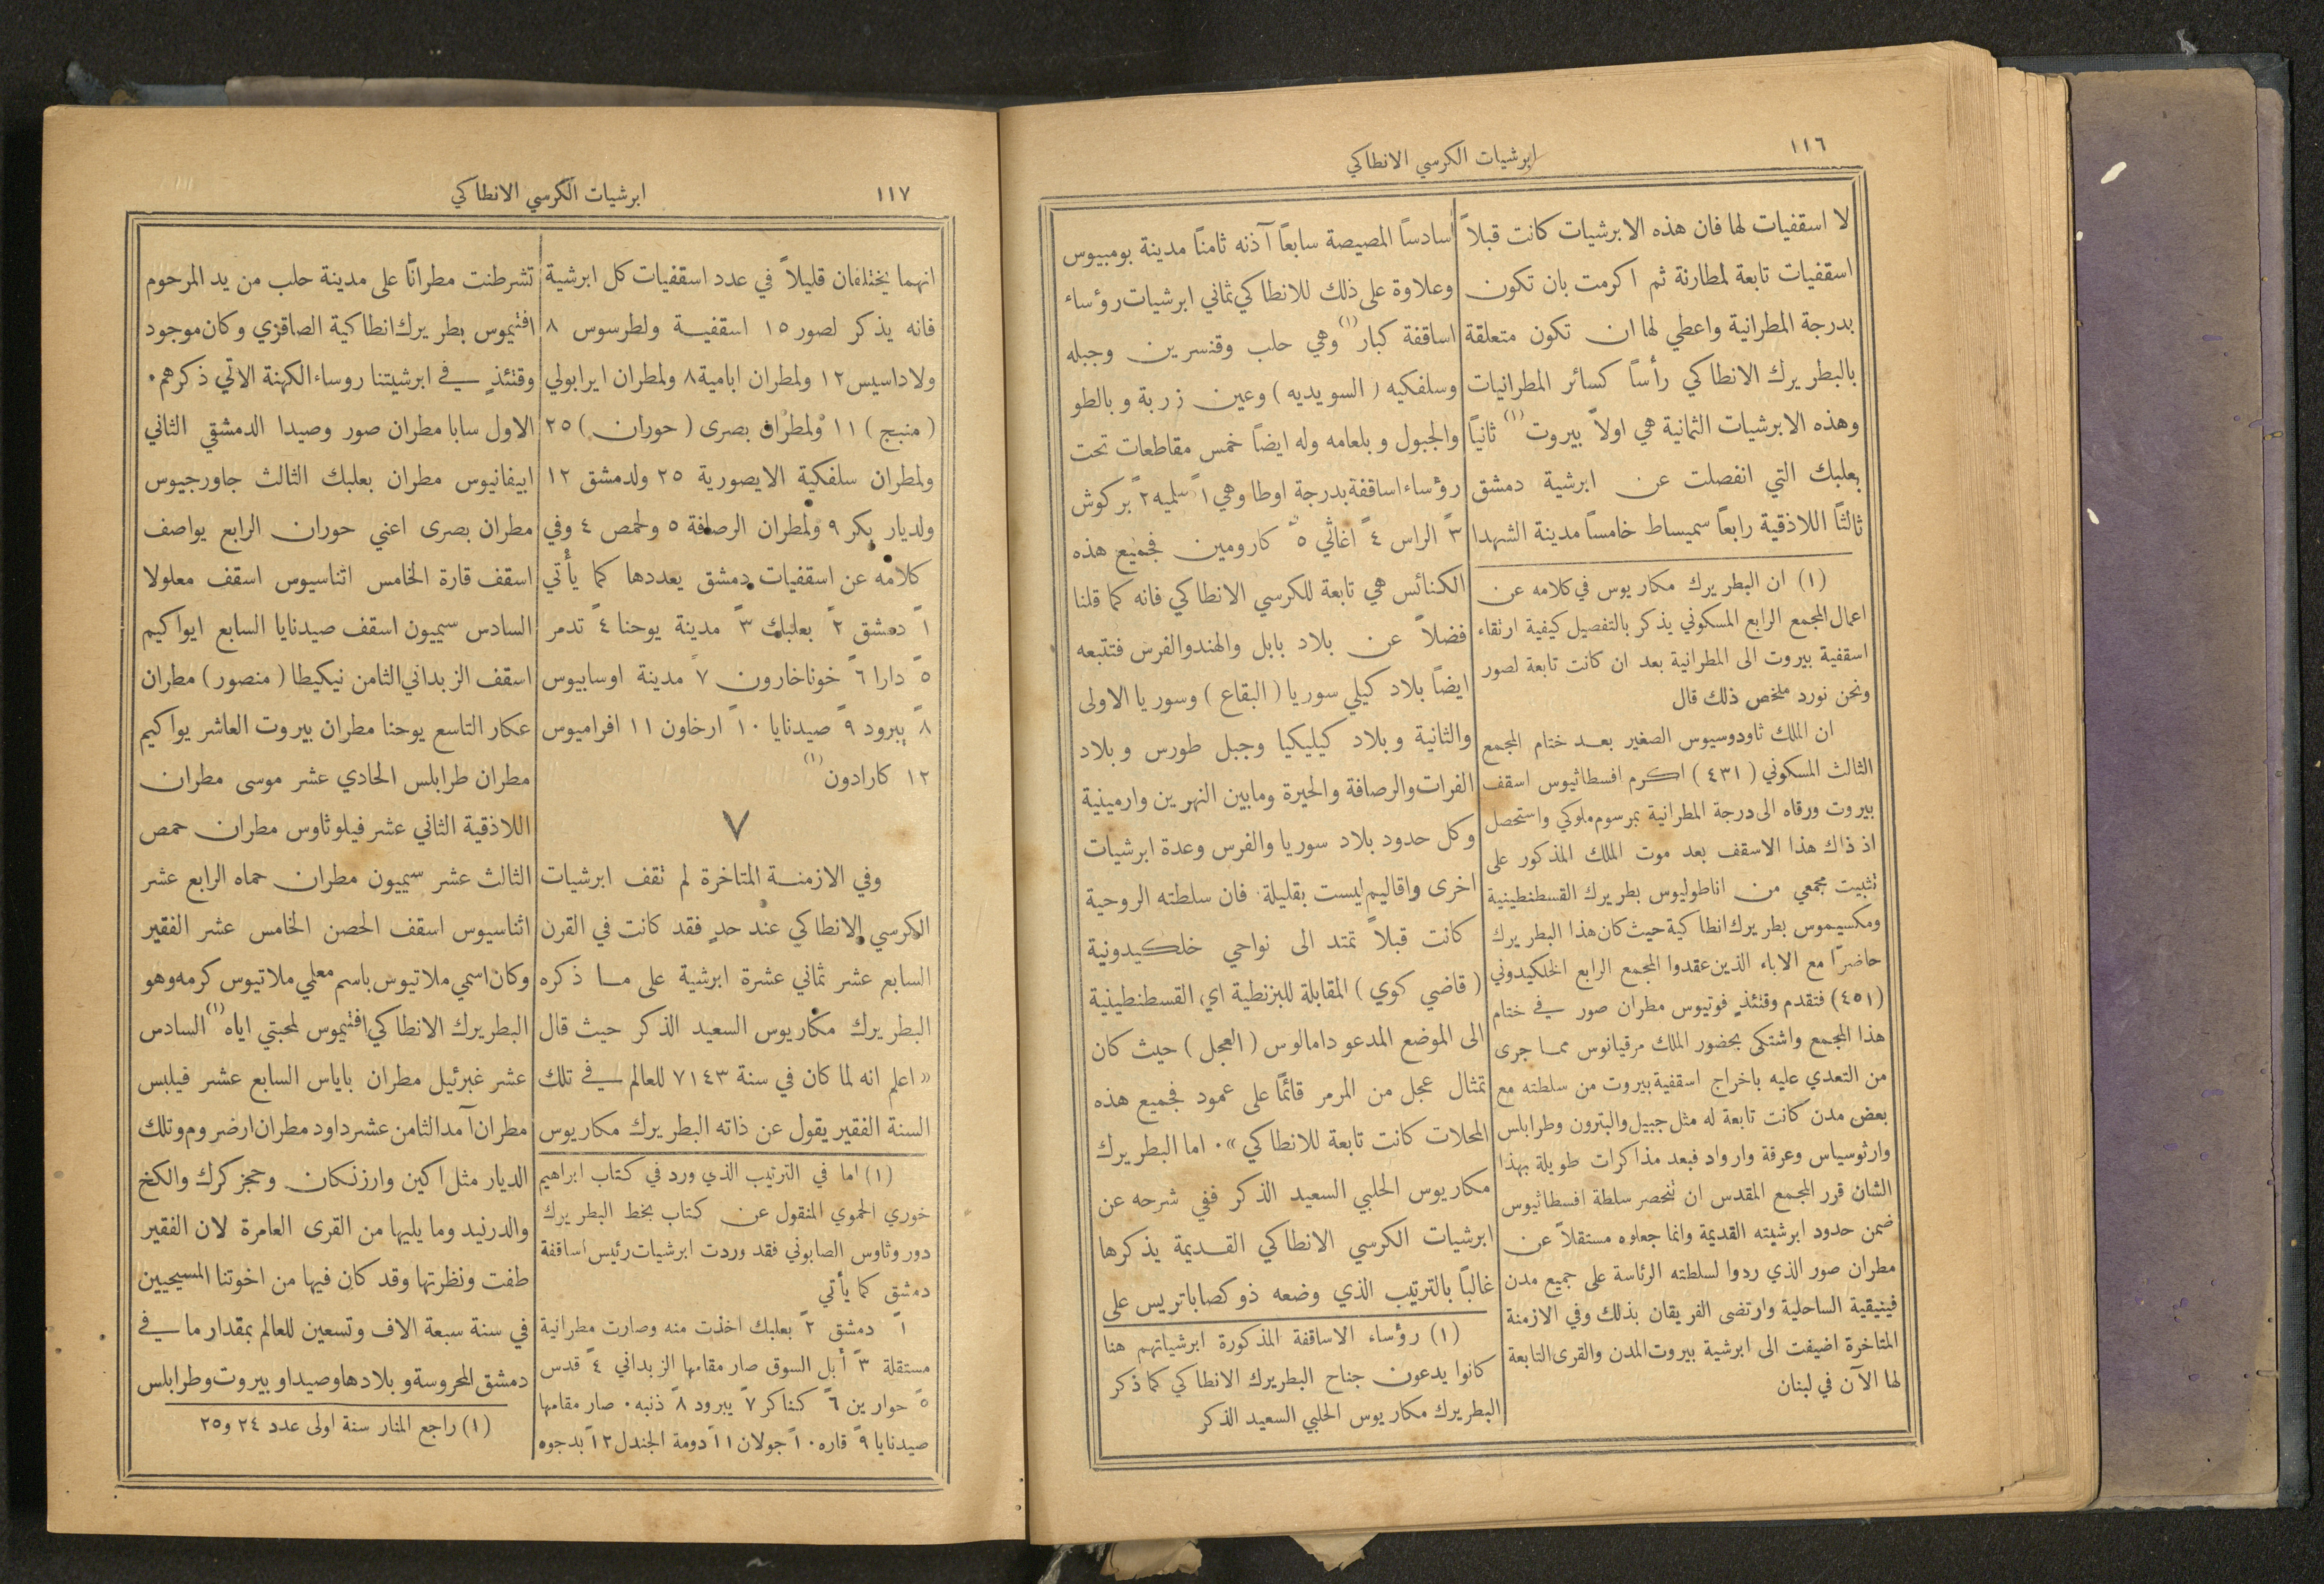 ١١٦
ابرشيات الكرسي الانطاكي
لا اسقفيات لها فان هذه الابرشيات كانت قبلاً
اسقفيات تابعة لمطارنة ثم اكرمت بان تكون
بدرجة المطرانية واعطي لها ان تكون متعلقة
بالبطريرك الانطاكي رأساً كسائر المطرانيات
وهذه الابرشيات الثمانية هي اولاً بيروت (١) ثانياً
بعلبك التي انفصلت عن ابرشية دمشق
ثالثاً اللاذقية رابعاً سميساط خامساً مدينة الشهدا
(١) ان البطريرك مكاريوس في كلامه عن
اعمال المجمع الرابع المسكوني يذكر بالتفصيل كيفية ارتقاء
اسقفية بيروت الى المطرانية بعد ان كانت تابعة لصور
ونحن نورد ملخص ذلك قال
ان الملك ثاودوسيوس الصغير بعد ختام المجمع
الثالث المسكوني (٤٣١) اكرم افسطاثيوس اسقف
بيروت ورقاه الى درجة المطرانية بمرسوم ملوكي واستحصل
اذ ذاك هذا الاسقف بعد موت الملك المذكور على
تثبيت مجمعي من اناطوليوس بطريرك القسطنطينية
ومكسيموس بطريرك انطاكية حيث كان هذا البطريرك
حاضراً مع الاباء الذين عقدوا المجمع الرابع الخلكيدوني
(٤٥١) فتقدم وقتئذٍ فوتيوس مطران صور في ختام
هذا المجمع واشتكى بحضور الملك مرقيانوس مما جرى
من التعدي عليه باخراج اسقفية بيروت من سلطته مع
بعض مدن كانت تابعة له مثل جبيل والبترون وطرابلس
وارثوسياس وعرقة وارواد فبعد مذاكرات طويلة بهذا
الشان قرر المجمع المقدس ان تنحصر سلطة افسطاثيوس
ضمن حدود ابرشيته القديمة وانما جعلوه مستقلاً عن
مطران صور الذي ردوا لسلطته الرئاسة على جميع مدن
فينيقية الساحلية وارتضى الفريقان بذلك وفي الازمنة
المتاخرة اضيفت الى ابرشية بيروت المدن والقرى التابعة
لها الآن في لبنان
سادساً المصيصة سابعاً آذنه ثامناً مدينة بومبيوس
وعلاوة على ذلك للانطاكي ثماني ابرشيات رؤساء
اساقفة كبار (١) وهي حلب وقنسرين وجبله
وسلفكيه (السويديه) وعين زربة وبالطو
والجبول وبلعامه وله ايضاً خمس مقاطعات تحت
رؤساء اساقفة بدرجة اوطا وهي ١ً سلميه ٢ً بركوش
٣ً الراس ٤ً اغاثي ٥ً كارومين فجميع هذه
الكنائس هي تابعة للكرسي الانطاكي فانه كما قلنا
فضلاً عن بلاد بابل والهند والفرس فتتبعه
ايضاً بلاد كيلي سوريا (البقاع) وسوريا الاولى
والثانية وبلاد كيليكيا وجبل طورس وبلاد
الفرات والرصافة والحيرة ومابين النهرين وارمينية
وكل حدود بلاد سوريا والفرس وعدة ابرشيات
اخرى واقاليم ليست بقليلة. فان سلطته الروحية
كانت قبلاً تمتد الى نواحي خلكيدونية
(قاضي كوي) المقابلة للبزنطية اي القسطنطينية
الى الموضع المدعو دامالوس (العجل) حيث كان
تمثال عجل من المرمر قائماً على عمود فجميع هذه
المحلات كانت تابعة للانطاكي». اما البطريرك
مكاريوس الحلبي السعيد الذكر ففي شرحه عن
ابرشيات الكرسي الانطاكي القديمة يذكرها
غالباً بالترتيب الذي وضعه ذوكصاباتريس على
(١) رؤساء الاساقفة المذكورة ابرشياتهم هنا
كانوا يدعون جناح البطريرك الانطاكي كما ذكر
البطريرك مكاريوس الحلبي السعيد الذكر
١١٧
ابرشيات الكرسي الانطاكي
انهما يختلفان قليلاً في عدد اسقفيات كل ابرشية
فانه يذكر لصور ١٥ اسقفية ولطرسوس ٨
ولاداسيس ١٢ ولمطران ابامية ٨ ولمطران ايرابولي
(منبج) ١١ ولمطران بصرى (حوران) ٢٥
ولمطران سلفكية الايصورية ٢٥ ولدمشق ١٢
ولديار بكر ٩ ولمطران الرصافة ٥ ولحمص ٤ وفي
كلامه عن اسقفيات دمشق يعددها كما يأتي
١ً دمشق ٢ً بعلبك ٣ً مدينة يوحنا ٤ً تدمر
٥ً دارا ٦ً خوناخارون ٧ً مدينة اوسابيوس
٨ً يبرود ٩ً صيدنايا ١٠ً ارخاون ١١ افراميوس
١٢ كارادون (١)
٧
وفي الازمنة المتاخرة لم تقف ابرشيات
الكرسي الانطاكي عند حدٍ فقد كانت في القرن
السابع عشر ثماني عشرة ابرشية على ما ذكره
البطريرك مكاريوس السعيد الذكر حيث قال
«اعلم انه لما كان في سنة ٧١٤٣ للعالم في تلك
السنة الفقير يقول عن ذاته البطريرك مكاريوس
(١) اما في الترتيب الذي ورد في كتاب ابراهيم
خوري الحموي المنقول عن كتاب بخط البطريرك
دوروثاوس الصابوني فقد وردت ابرشيات رئيس اساقفة
دمشق كما يأتي
١ً دمشق ٢ً بعلبك اخذت منه وصارت مطرانية
مستقلة ٣ً أبل السوق صار مقامها الزبداني ٤ً قدس
٥ً حوارين ٦ً كناكر ٧ً يبرود ٨ً ذنبه. صار مقامها
صيدنايا ٩ً قاره ١٠ً جولان ١١ً دومة الجندل ١٢ً بدجوه
تشرطنت مطراناً على مدينة حلب من يد المرحوم
افتيموس بطريرك انطاكية الصاقزي وكان موجود
وقتئذٍ في ابرشيتنا روساء الكهنة الاتي ذكرهم.
الاول سابا مطران صور وصيدا الدمشقي الثاني
ابيفانيوس مطران بعلبك الثالث جاورجيوس
مطران بصرى اعني حوران الرابع يواصف
اسقف قارة الخامس اثناسيوس اسقف معلولا
السادس سيميون اسقف صيدنايا السابع ايواكيم
اسقف الزبداني الثامن نيكيطا (منصور) مطران
عكار التاسع يوحنا مطران بيروت العاشر يواكيم
مطران طرابلس الحادي عشر موسى مطران
اللاذقية الثاني عشر فيلوثاوس مطران حمص
الثالث عشر سيميون مطران حماه الرابع عشر
اثناسيوس اسقف الحصن الخامس عشر الفقير
وكان اسمي ملاتيوس باسم معلمي ملاتيوس كرمه وهو
البطريرك الانطاكي افتيموس لمحبتي اياه (١) السادس
عشر غبرئيل مطران باياس السابع عشر فيلبس
مطران آمد الثامن عشر داود مطران ارضروم وتلك
الديار مثل اكين وارزنكان وحجز كرك والكخ
والدرنيد وما يليها من القرى العامرة لان الفقير
طفت ونظرتها وقد كان فيها من اخوتنا المسيحيين
في سنة سبعة الاف وتسعين للعالم بمقدار ما في
دمشق المحروسة وبلادها وصيدا وبيروت وطرابلس
(١) راجع المنار سنة اولى عدد ٢٤ و٢٥